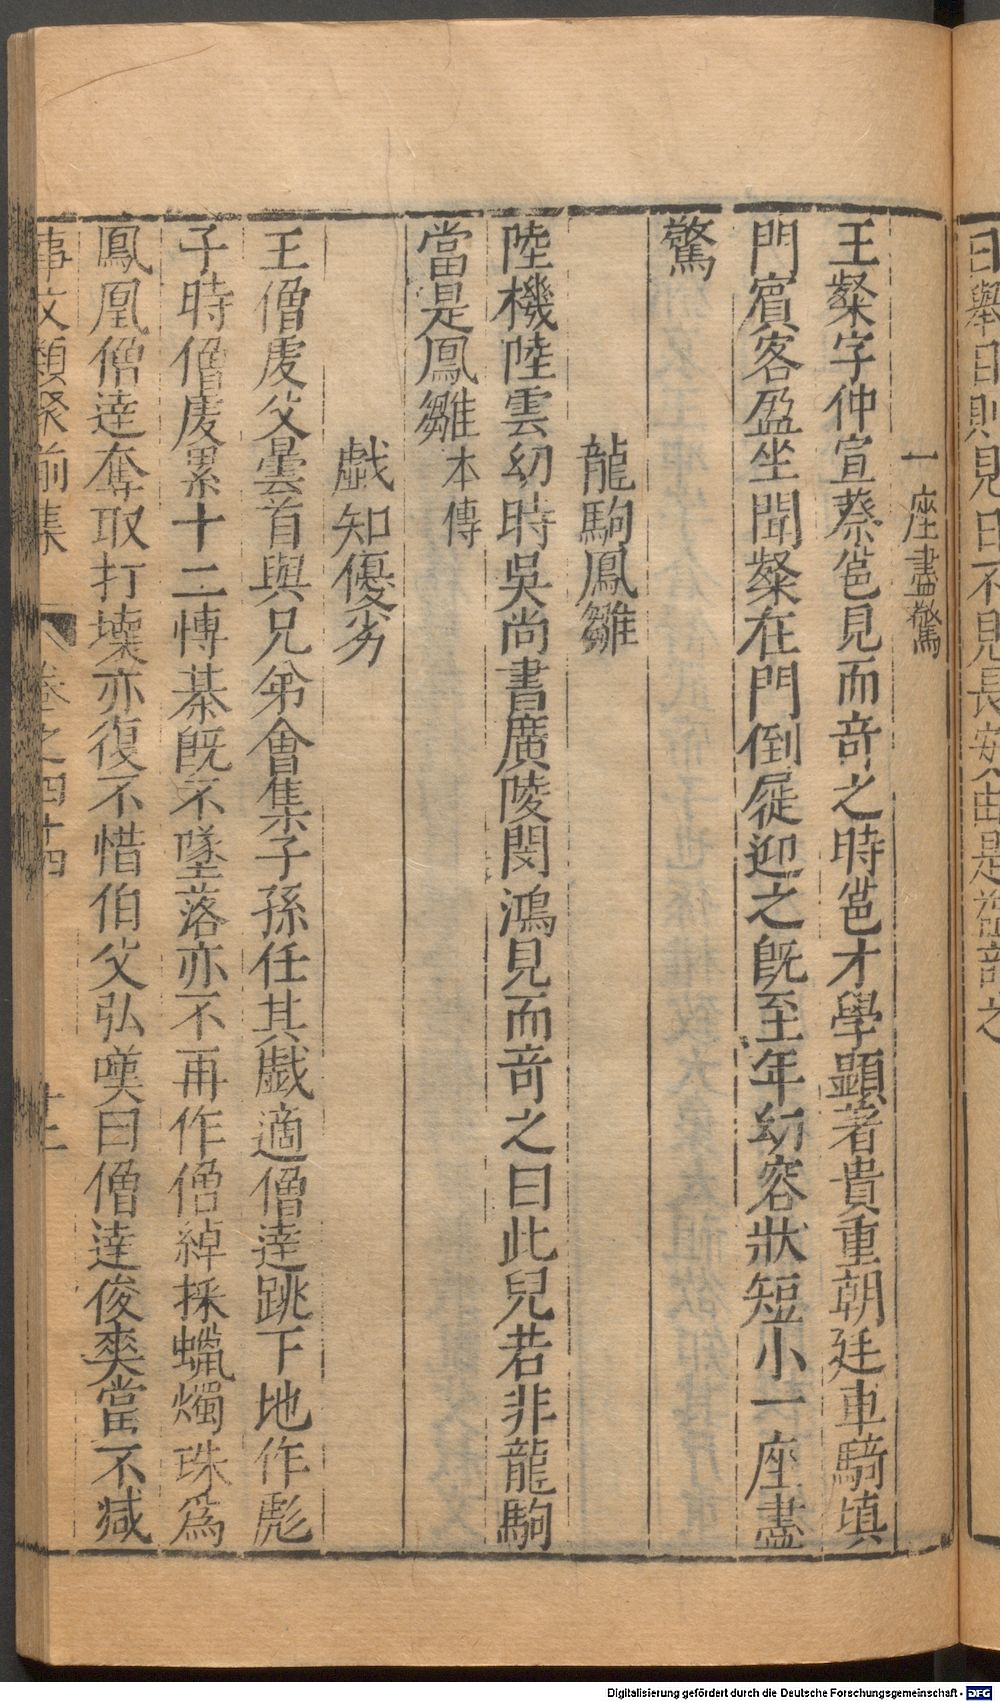 曰舉目則見日不見長安由是益奇之
一座盡驚
王粲字仲宣蔡邕見而奇之時邕才學顯著貴重朝廷車騎填
門賓客盈坐聞粲在門倒屣迎之旣至年幼容狀短小一座盡
驚
龍駒鳳雛
陸機陸雲幼時吳尚書廣陵閔鴻見而奇之曰此兒若非龍駒
當是鳳雛本傳
戱知優劣
王僧虔父曇首與兄弟會集子孫任其戱適僧達跳下地作彪
子時僧虔累十二博棊旣不墜落亦不再作僧綽採蠟燭珠爲
鳳凰僧達奪取打壞亦復不惜伯父弘嘆曰僧達俊爽當不减
事文類聚前集 卷之四十四
Digitalisierung gefördert durch die Deutsche Forschungsgemeinschaft - DFG